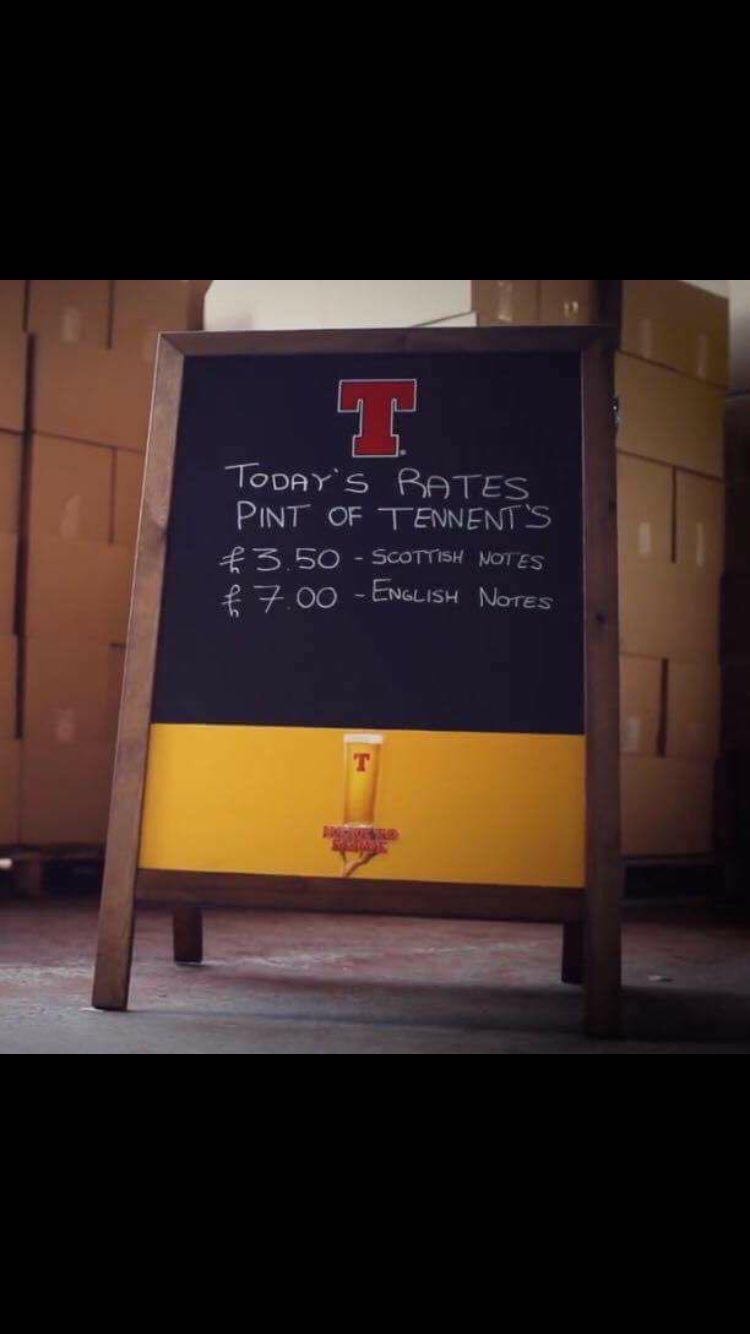 T
TODAY'S RATES
PINT OF TENNENT'S
£3.50 - SCOTTISH NOTES
£7.00 - ENGLISH NOTES
T